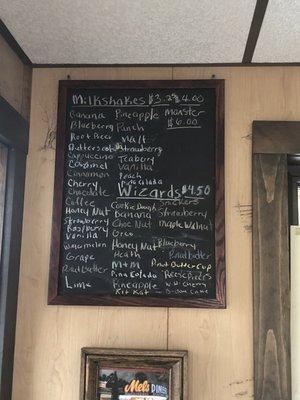 Milkshakes $3.25 $4.00
Banana Pineapple Monster
Blueberry Punch $6.00
Root Beer Malt
Butterscotch Strawberry
Cappuccino Teaberry
Caramel Vanilla
Cinnamon Peach
Cherry Pina Colada
Chocolate Wizards $4.50
Coffee Cookie Dough Snickers
Honey Nut Banana Strawberry
Strawberry Choc Nut Maple Walnut
Raspberry Oreo
Vanilla
Honey Nut Blueberry
Grape Heath P.nut butter
P.nut butter M+M P.nut Butter Cup
Pina Colada Reese Pieces
Lime Pineapple W.W. Cherry
Kit Kat
Mel's
DINER